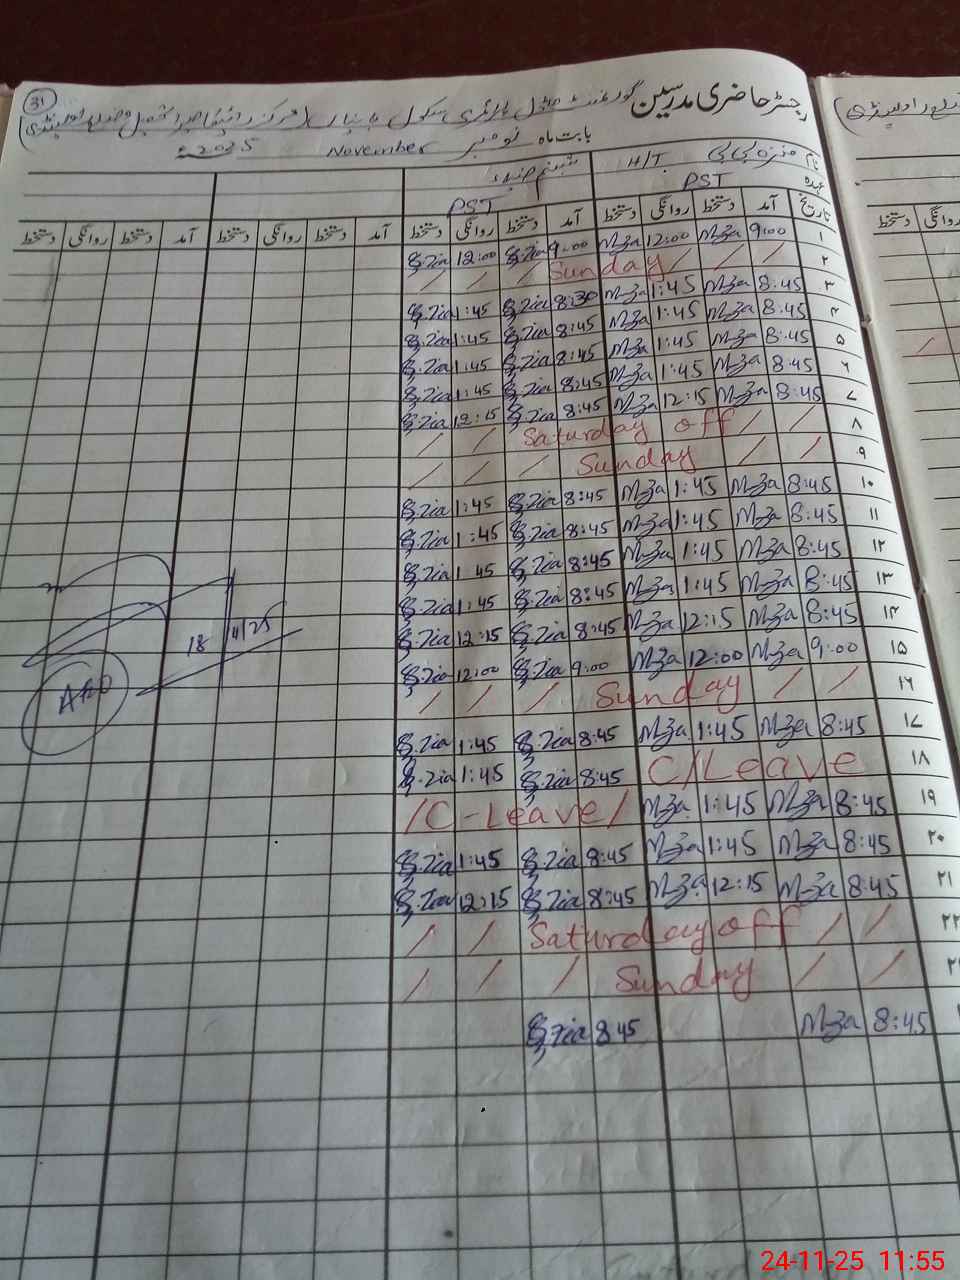 31
رجسٹر حاضری مدرسین گورنمنٹ ماڈل پرائمری سکول
بابت ماہ نومبر November 2025ء
نام منزہ بی بی H/T شبنم ضیاء
عہدہ PST PST
تاریخ آمد دستخط روانگی دستخط آمد دستخط روانگی دستخط آمد دستخط روانگی دستخط آمد دستخط روانگی دستخط
۱ 9:00 M-za 12:00 M-za 9:00 S.Zia 12:00 S.Zia
۲ / / / Sunday / / /
۳ 8:45 M-za 1:45 M-za 8:30 S.Zia 1:45 S.Zia
۴ 8:45 M-za 1:45 M-za 8:45 S.Zia 1:45 S.Zia
۵ 8:45 M-za 1:45 M-za 8:45 S.Zia 1:45 S.Zia
۶ 8:45 M-za 1:45 M-za 8:45 S.Zia 1:45 S.Zia
۷ 8:45 M-za 12:15 M-za 8:45 S.Zia 12:15 S.Zia
۸ / / Saturday off / /
۹ / / / Sunday / /
۱۰ 8:45 M-za 1:45 M-za 8:45 S.Zia 1:45 S.Zia
۱۱ 8:45 M-za 1:45 M-za 8:45 S.Zia 1:45 S.Zia
۱۲ 8:45 M-za 1:45 M-za 8:45 S.Zia 1:45 S.Zia
۱۳ 8:45 M-za 1:45 M-za 8:45 S.Zia 1:45 S.Zia
۱۴ 8:45 M-za 12:15 M-za 8:45 S.Zia 12:15 S.Zia
۱۵ 9:00 M-za 12:00 M-za 9:00 S.Zia 12:00 S.Zia
۱۶ / / / Sunday / /
۱۷ 8:45 M-za 1:45 M-za 8:45 S.Zia 1:45 S.Zia
۱۸ C/Leave 8:45 S.Zia 1:45 S.Zia
۱۹ 8:45 M-za 1:45 M-za /C-Leave/
۲۰ 8:45 M-za 1:45 M-za 8:45 S.Zia 1:45 S.Zia
۲۱ 8:45 M-za 12:15 M-za 8:45 S.Zia 12:15 S.Zia
۲۲ / / Saturday off / /
/ / / Sunday / /
8:45 M-za 8:45 S.Zia
18/11/25
AEO
دستخط روانگی
24-11-25 11:55